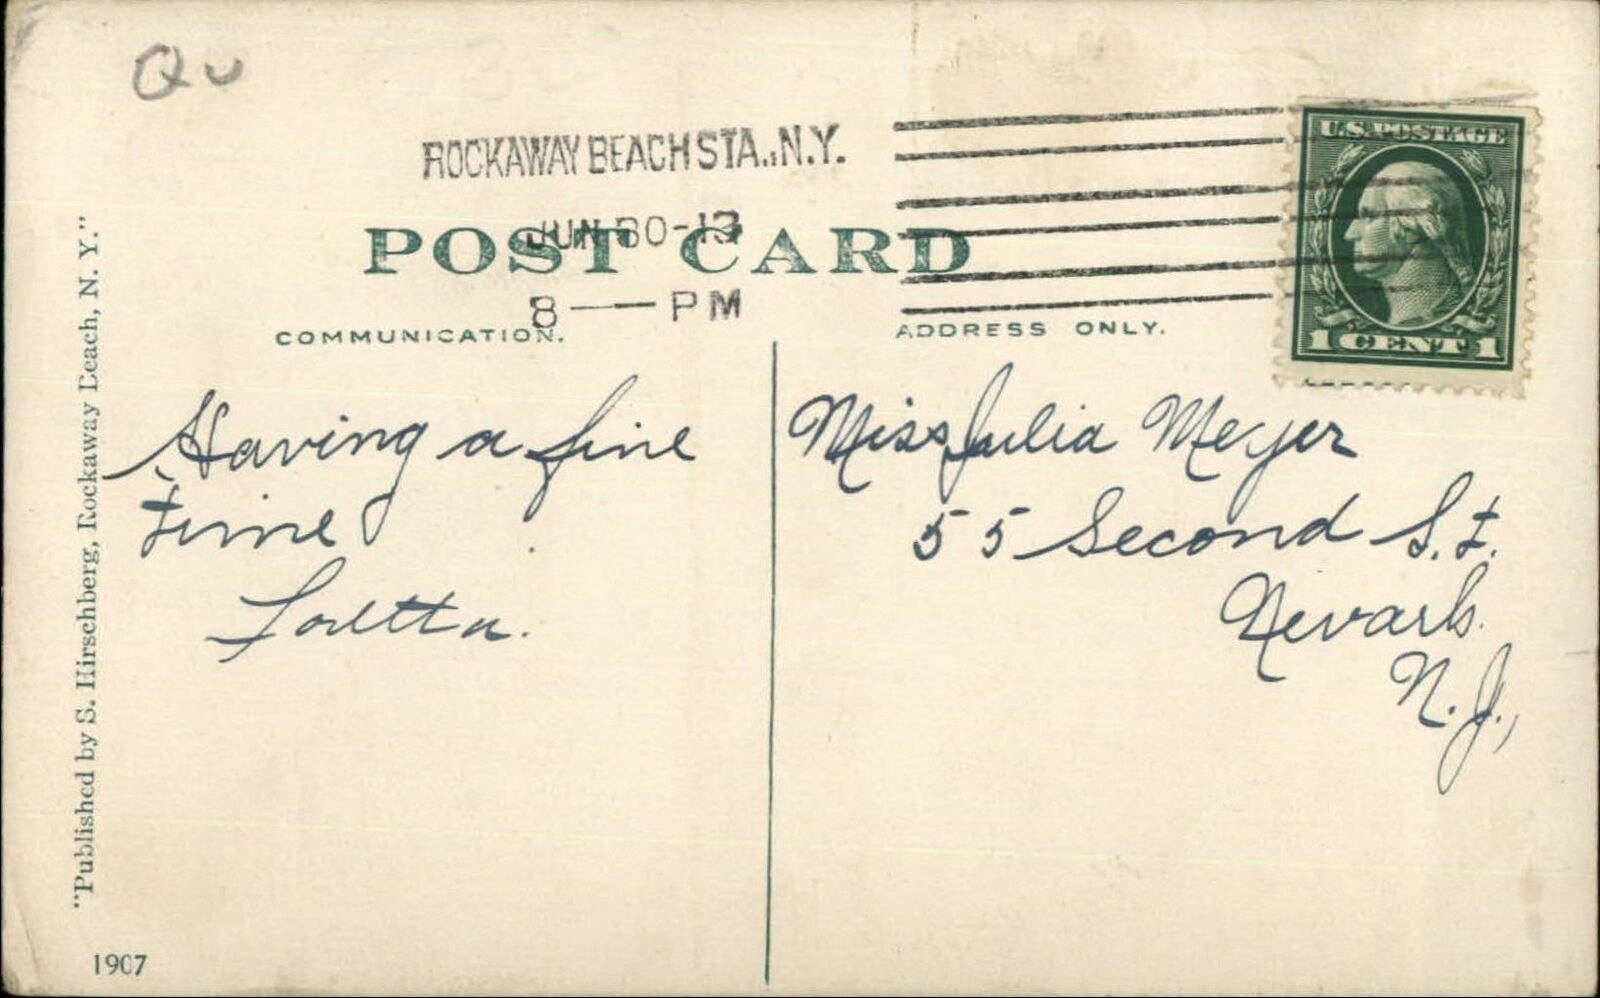 Qu
ROCKAWAY BEACH STA., N.Y.
JUN 30-13
8 — PM
U.S. POSTAGE
1 CENT 1
POST CARD
COMMUNICATION.
ADDRESS ONLY.
Having a fine
time
Loretta.
Miss Julia Meyer
55 Second St.
Newark.
N. J.,
"Published by S. Hirschberg, Rockaway Beach, N. Y."
1907